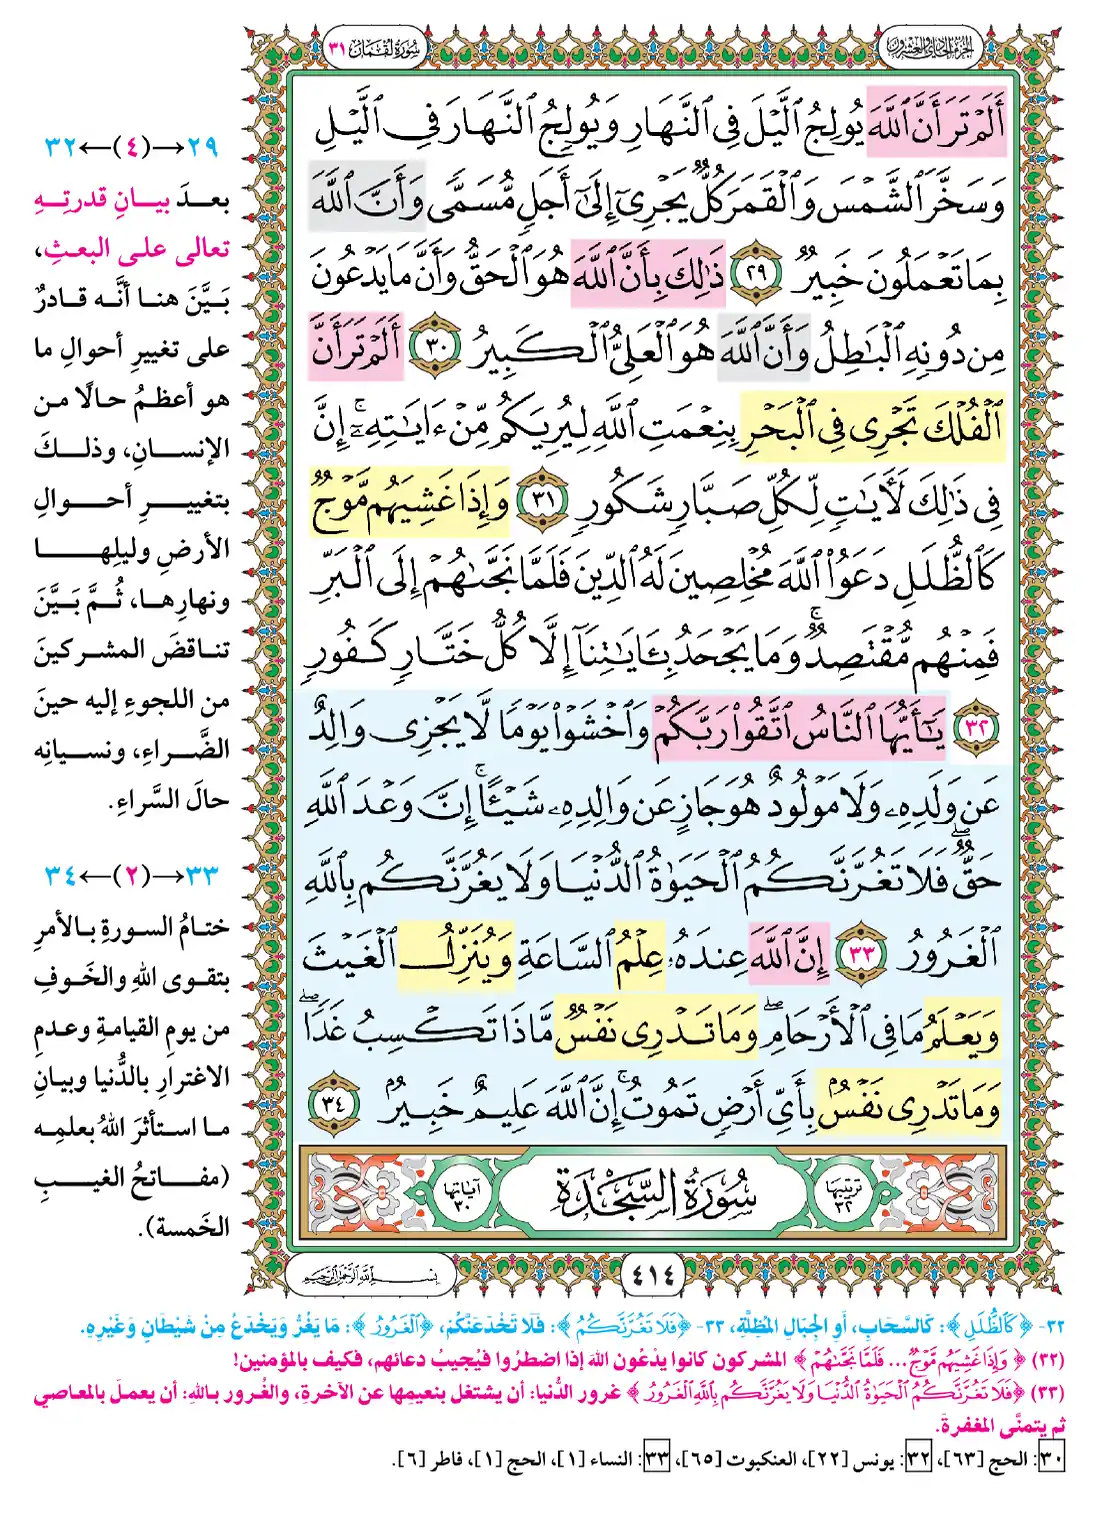 الجزء الحادي والعشرون
سورة لقمان ٣١
أَلَمْ تَرَ أَنَّ ٱللَّهَ يُولِجُ ٱلَّيْلَ فِى ٱلنَّهَارِ وَيُولِجُ ٱلنَّهَارَ فِى ٱلَّيْلِ
وَسَخَّرَ ٱلشَّمْسَ وَٱلْقَمَرَ كُلٌّ يَجْرِىٓ إِلَىٰٓ أَجَلٍ مُّسَمًّى وَأَنَّ ٱللَّهَ
بِمَا تَعْمَلُونَ خَبِيرٌ ٢٩ ذَٰلِكَ بِأَنَّ ٱللَّهَ هُوَ ٱلْحَقُّ وَأَنَّ مَا يَدْعُونَ
مِن دُونِهِ ٱلْبَٰطِلُ وَأَنَّ ٱللَّهَ هُوَ ٱلْعَلِىُّ ٱلْكَبِيرُ ٣٠ أَلَمْ تَرَ أَنَّ
ٱلْفُلْكَ تَجْرِى فِى ٱلْبَحْرِ بِنِعْمَتِ ٱللَّهِ لِيُرِيَكُم مِّنْ ءَايَٰتِهِۦٓ ۚ إِنَّ
فِى ذَٰلِكَ لَءَايَٰتٍ لِّكُلِّ صَبَّارٍ شَكُورٍ ٣١ وَإِذَا غَشِيَهُم مَّوْجٌ
كَٱلظُّلَلِ دَعَوُا۟ ٱللَّهَ مُخْلِصِينَ لَهُ ٱلدِّينَ فَلَمَّا نَجَّىٰهُمْ إِلَى ٱلْبَرِّ
فَمِنْهُم مُّقْتَصِدٌ ۚ وَمَا يَجْحَدُ بِـَٔايَٰتِنَآ إِلَّا كُلُّ خَتَّارٍ كَفُورٍ
٣٢ يَٰٓأَيُّهَا ٱلنَّاسُ ٱتَّقُوا۟ رَبَّكُمْ وَٱخْشَوْا۟ يَوْمًا لَّا يَجْزِى وَالِدٌ
عَن وَلَدِهِۦ وَلَا مَوْلُودٌ هُوَ جَازٍ عَن وَالِدِهِۦ شَيْـًٔا ۚ إِنَّ وَعْدَ ٱللَّهِ
حَقٌّ ۖ فَلَا تَغُرَّنَّكُمُ ٱلْحَيَوٰةُ ٱلدُّنْيَا وَلَا يَغُرَّنَّكُم بِٱللَّهِ
ٱلْغَرُورُ ٣٣ إِنَّ ٱللَّهَ عِندَهُۥ عِلْمُ ٱلسَّاعَةِ وَيُنَزِّلُ ٱلْغَيْثَ
وَيَعْلَمُ مَا فِى ٱلْأَرْحَامِ ۖ وَمَا تَدْرِى نَفْسٌ مَّاذَا تَكْسِبُ غَدًا ۖ
وَمَا تَدْرِى نَفْسٌۢ بِأَىِّ أَرْضٍ تَمُوتُ ۚ إِنَّ ٱللَّهَ عَلِيمٌ خَبِيرٌۢ ٣٤
ترتيبها ٣٢ سُورَةُ السَّجْدَةِ آياتها ٣٠
بسم الله الرحمن الرحيم
٤١٤
٢٩→(٤)←٣٢
بعدَ بيانِ قدرتِهِ
تعالى على البعثِ،
بَيَّنَ هنا أنَّه قادرٌ
على تغييرِ أحوالِ ما
هو أعظمُ حالًا من
الإنسانِ، وذلكَ
بتغييرِ أحوالِ
الأرضِ وليلِها
ونهارِها، ثُمَّ بَيَّنَ
تناقضَ المشركينَ
من اللجوءِ إليه حينَ
الضَّراءِ، ونسيانِه
حالَ السَّراءِ.
٣٣→(٢)←٣٤
ختامُ السورةِ بالأمرِ
بتقوى اللهِ والخَوفِ
من يومِ القيامةِ وعدمِ
الاغترارِ بالدُّنيا وبيانِ
ما استأثرَ اللهُ بعلمِه
(مفاتحُ الغيبِ
الخَمسة).
٣٢- ﴿كَٱلظُّلَلِ﴾: كَالسَّحَابِ، أَوِ الجِبَالِ المُظِلَّةِ، ٣٣- ﴿فَلَا تَغُرَّنَّكُمُ﴾: فَلَا تَخْدَعَنَّكُمْ، ﴿ٱلْغَرُورُ﴾: مَا يَغُرُّ وَيَخْدَعُ مِنْ شَيْطَانٍ وَغَيْرِهِ.
(٣٢) ﴿وَإِذَا غَشِيَهُم مَّوْجٌ... فَلَمَّا نَجَّىٰهُمْ﴾ المشركون كانوا يدْعُون الله إذا اضطرُوا فيُجيبُ دعائهم، فكيف بالمؤمنين!
(٣٣) ﴿فَلَا تَغُرَّنَّكُمُ ٱلْحَيَوٰةُ ٱلدُّنْيَا وَلَا يَغُرَّنَّكُم بِٱللَّهِ ٱلْغَرُورُ﴾ غرور الدُّنيا: أن يشتغل بنعيمها عن الآخرة، والغُرور بالله: أن يعملَ بالمعاصي
ثم يتمنَّى المغفرةَ.
٣٠: الحج [٦٣]، ٣٢: يونس [٢٢]، العنكبوت [٦٥]، ٣٣: النساء [١]، الحج [١]، فاطر [٦].